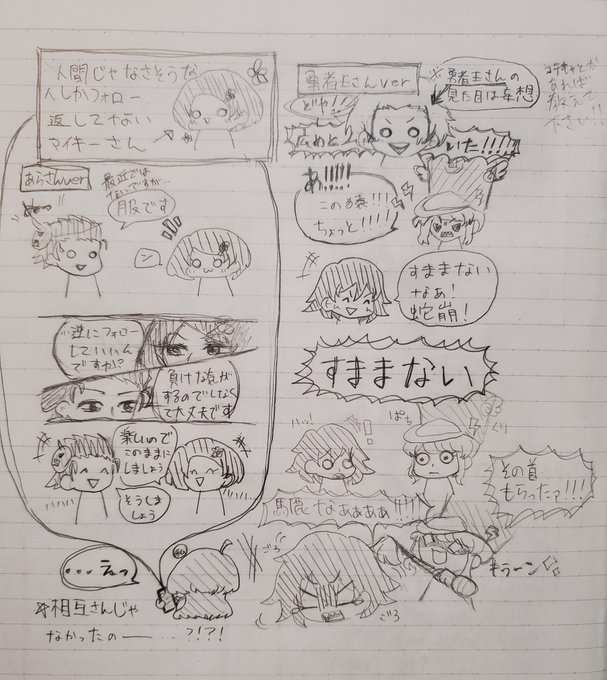 人間じゃなさそうな
人しかフォロー
返してない
マイキーさん
あらさんver
最近では
ないですが…
服です
ン
逆にフォロー
していいん
ですか?
負けな気が
するのでしなく
て大丈夫です
楽しいので
このままに
しましょう
そうしま
しょう
...えっ
相互さんじゃ
なかったの―…?!?!
勇者王さんver
※勇者王さんの
見た目は妄想
あれば
教えて
下さい…!
どや!!
広めと
いた!!!!
あ!!!!!
この猿!!!
ちょっと!!!!
すままない
なぁ!
蛇崩!
すままない
ハッ!
ぱち
くり
その首
もらったァ!!!
馬鹿なぁぁぁぁ!!!!
キラーン
ごろ
ごろ